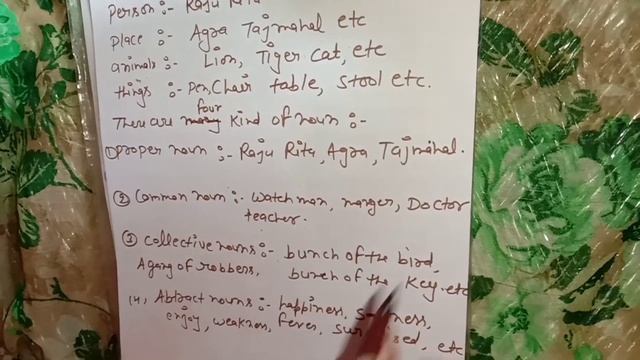 Person :- Raju Rita
place :- Agra Tajmahal etc
animals :- Lion, Tiger cat, etc
things :- Pen, Chair table, stool etc.
four
There are many kind of noun :-
① Proper noun :- Raju Rita, Agra, Tajmahal.
② Common noun :- watch man, manger, Doctor
teacher.
③ Collective nouns :- bunch of the bird,
A gang of robbers, bunch of the key. etc
(4) Abtract nouns :- happiness,
enjoy, weakness, fever, etc